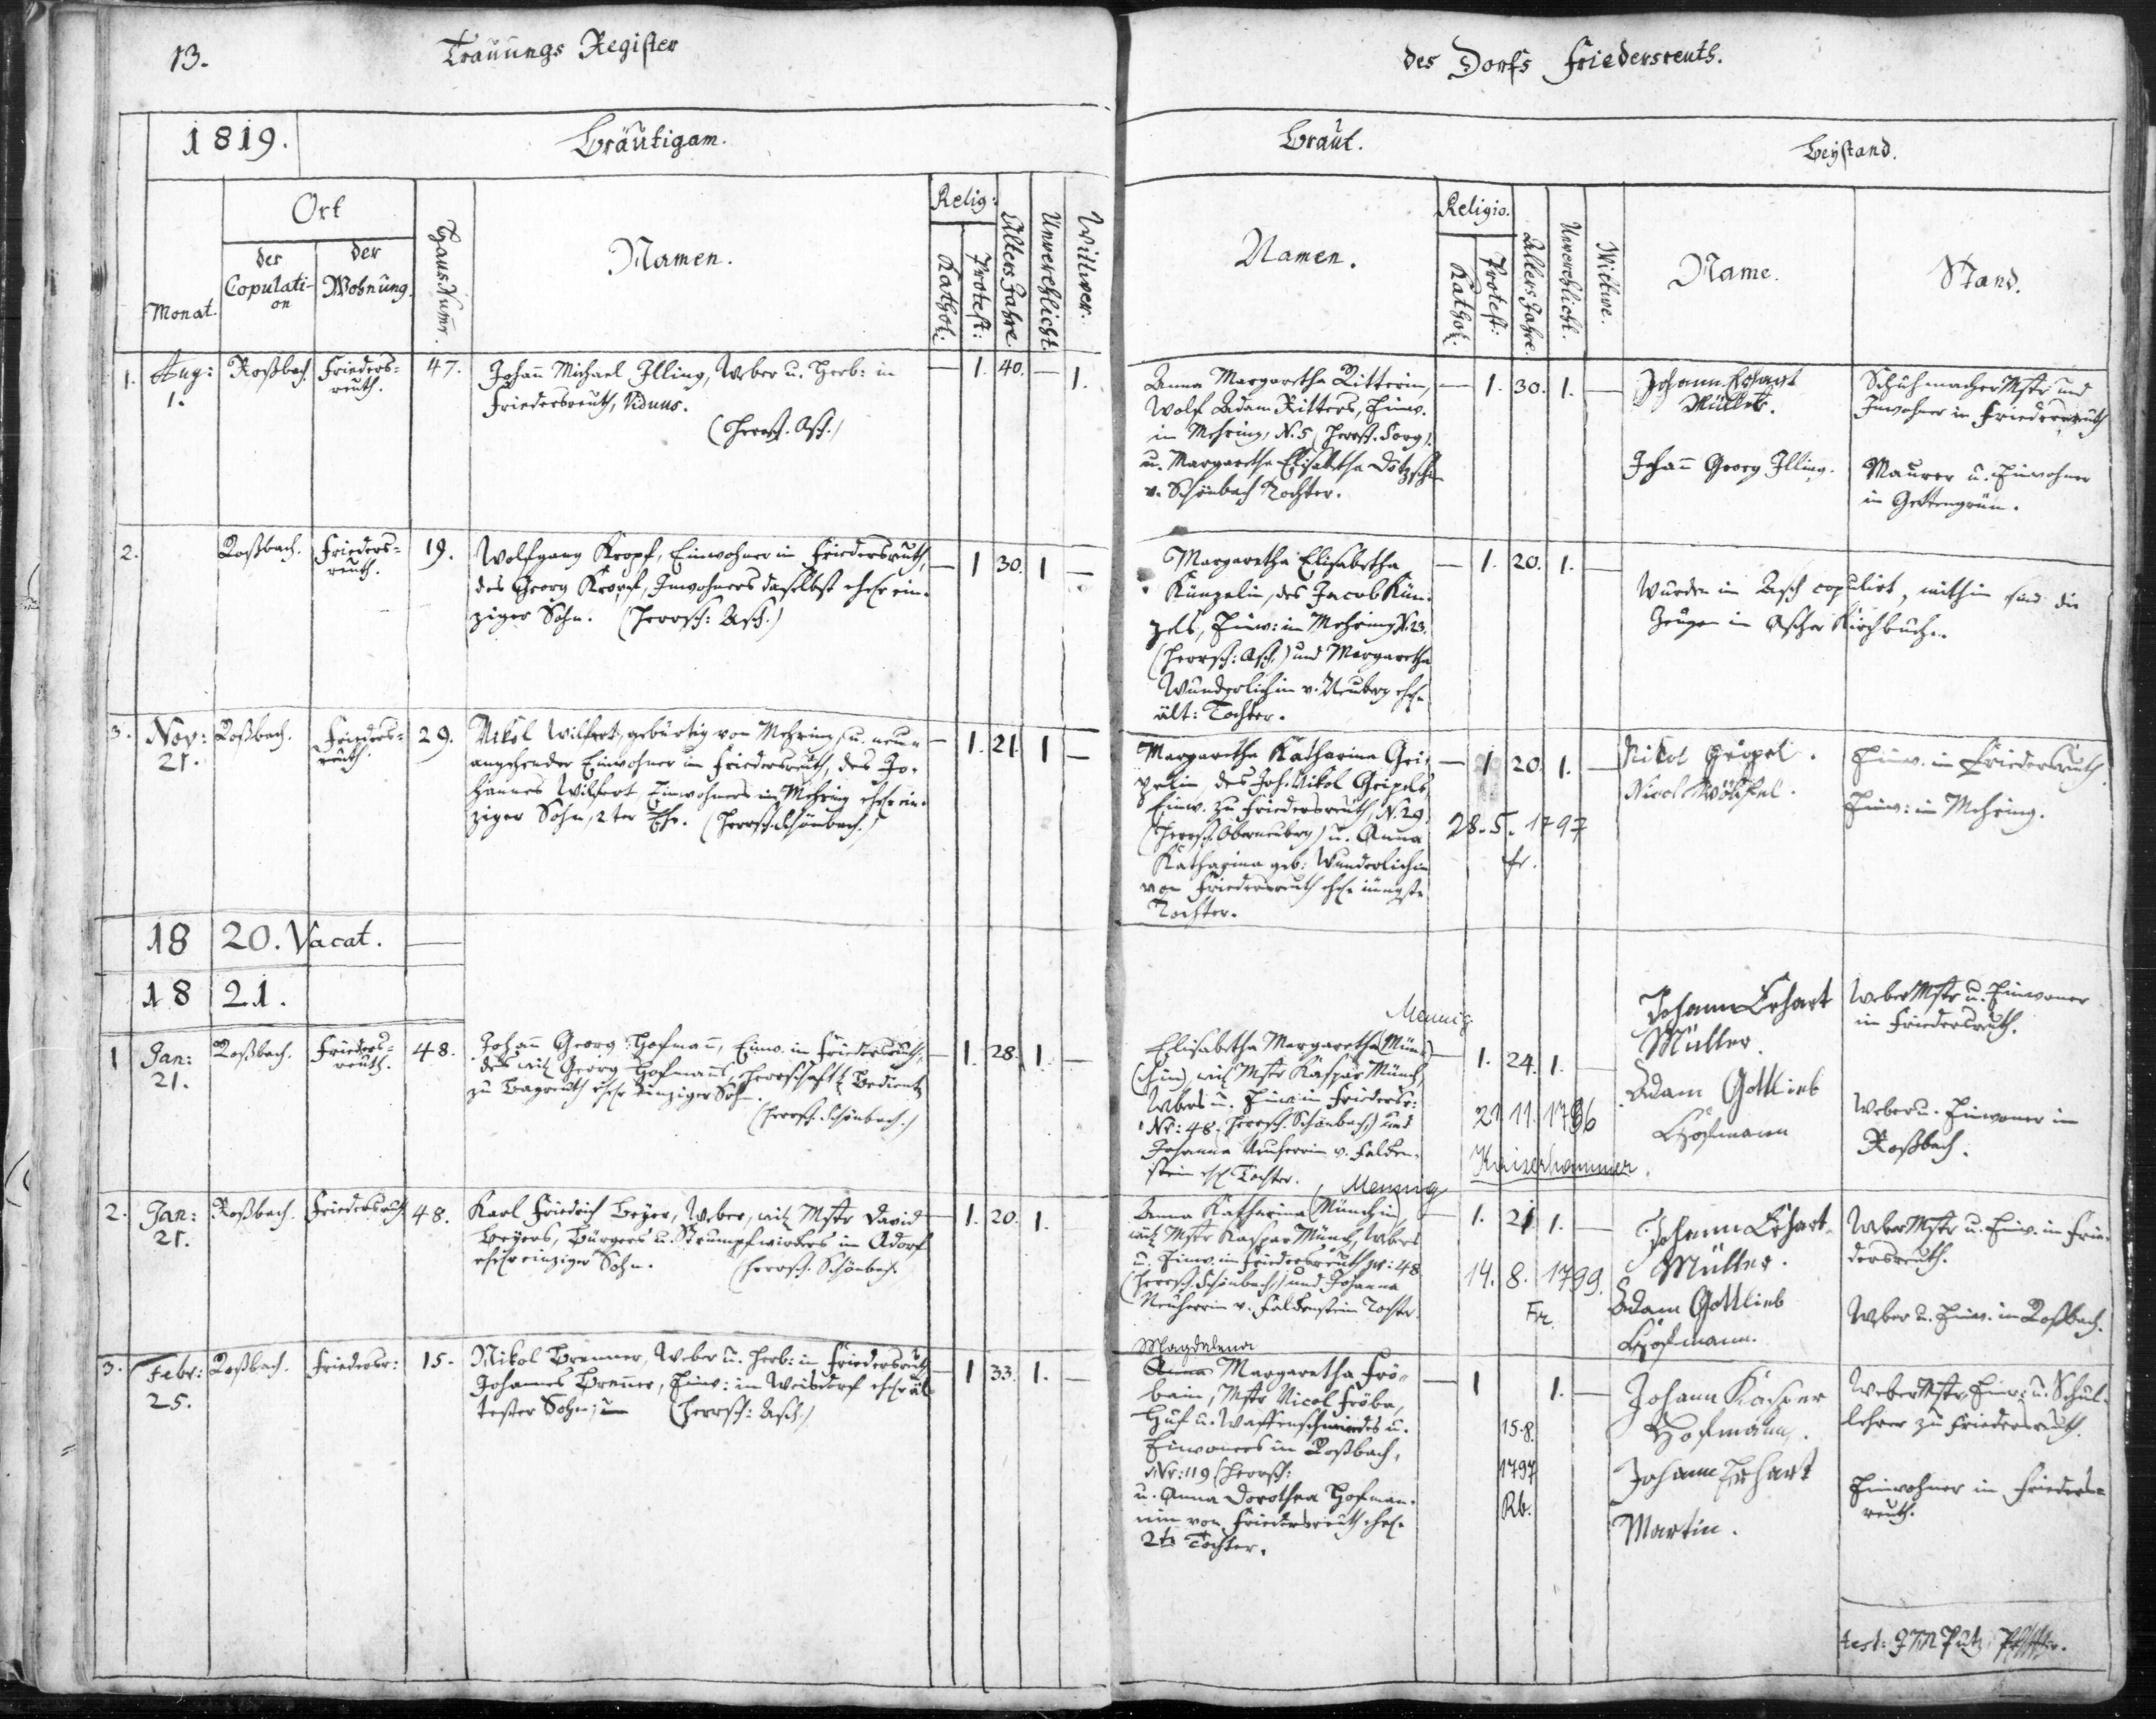 13.
Trauungs Register
des Dorfs Friedersreuth.
1819.
Bräutigam.
Braut.
Beystand.
Monat.
Ort
der Copulati-
on
der
Wohnung.
Haus Numr.
Namen.
Relig:
Kathol:
Protest:
Alters Jahre
Unverehlicht.
Wittwer.
Namen.
Religio.
Kathol.
Protest:
Alters Jahre
Unverehlicht.
Wittwe.
Name.
Stand.
1. Aug:
1.
Roßbach.
Frieders=
reuth.
47.
Johann Michael Illing, Weber u. Herb: in
Friedersreuth, Viduus.
(Herrsch. Asch.)
— 1. 40. — 1.
Anna Margaretha Ritterin,
Wolf Adam Ritters, Einw.
in Mehring, N. 5 (Herrsch. Sorg).
u. Margaretha Elisabetha
v. Schönbach Tochter.
— 1. 30. 1. —
Johann Erhart
Müller.
Schuhmacher Mstr und
Inwohner in Friedersreuth
Johann Georg Illing.
Maurer u. Einwohner
in Gettengrün.
2.
Roßbach.
Frieders=
reuth.
19.
Wolfgang Kropf, Einwohner in Friedersreuth,
des Georg Kropf, Inwohners daselbst ehel. ein-
ziger Sohn. (Herrsch: Asch.)
— 1 30. 1 —
Margaretha Elisabetha
Künzelin, des Jacob Kün-
zels, Einw: in Mehring N. 23.
(Herrsch: Asch.) und Margaretha
Wunderlichin v. Neuberg ehel.
ält: Tochter.
— 1. 20. 1. —
Wurden in Asch copulirt, mithin sind die
Zeugen im Ascher Kirchbuche.
3. Nov:
21.
Roßbach.
Frieders=
reuth
29.
Nikol Wilfert, gebürtig von Mehring, u. neu
angehender Einwohner in Friedersreuth, des Jo-
hannes Wilfert, Einwohners in Mehring ehel. ein-
ziger Sohn, 2ter Ehe. (Herrsch. Schönbach.)
— 1. 21. 1 —
Margaretha Katharina Gei-
pelin des Joh. Nikol Geipels,
Einw. zu Friedersreuth, N. 29.
(Herrsch. Oberneuberg) u. Anna
Katharina geb: Wunderlichin
von Friedersreuth ehel. jüngste
Tochter.
— 1 20. 1. —
28. 5. 1797
fr.
Nikol Geipel.
Einw. in Friedersreuth.
Nicol Wölfel.
Einw: in Mehring.
18 20. Vacat.
18 21.
1 Jan:
21.
Roßbach.
Frieders=
reuth.
48.
Johann Georg Hofmann, Einw. in Friedersreuth,
des Georg Hofmanns, Herrschaftl. Bedient.
zu Bayreuth ehel. einziger Sohn.
(Herrsch. Schönbach.)
— 1. 28. 1. —
Mennig
Elisabetha Margaretha (Mün-
chin), Mstr Kaspar Münch,
Webers u. Einw in Friedersr:
Nr: 48. (Herrsch. Schönbach) und
Johanna Neuherrin v. Falken-
stein ehel. Tochter.
— 1. 24. 1. —
21. 11. 1796
Kaiserhammer.
Johann Erhart
Müller.
Weber Mstr u. Einwoner
in Friedersreuth.
Adam Gottlieb
Hofmann
Weber u. Einwoner in
Roßbach.
2. Jan:
21.
Roßbach.
Friedersreuth
48.
Karl Friedrich Beyer, Weber, Mstr David
Beyers, Bürgers u. Strumpfwirkers in Adorf
ehel. einziger Sohn. (Herrsch. Schönbach.
— 1. 20. 1.
Mennig
Anna Katharina (Münchin)
Mstr Kaspar Münch, Webers
u. Einw. in Friedersreuth Nr: 48
(Herrsch. Schönbach,) und Johanna
Neuherrin v. Falkenstein Tochter.
— 1. 21 1. —
14. 8. 1799.
Fr.
Johann Erhart
Müller.
Weber Mstr u. Einw. in Frie-
dersreuth.
Adam Gottlieb
Hofmann.
Weber u. Einw. in Roßbach.
3. Febr:
25.
Roßbach.
Friedersr:
15.
Nikol Brenner, Weber u. Herb: in Friedersreuth
Johannes Brenner, Einw: in Weisdorf ehel. äl-
tester Sohn; (Herrsch: Asch.)
— 1 33. 1. —
Magdalena
Anna Margaretha Frö-
bain, Mstr Nicol Fröba,
Huf u. Waffenschmiedes u.
Einwoners in Roßbach,
Nr: 119 (Herrsch:
u. Anna Dorothea Hofman-
nin von Friedersreuth ehel.
2te Tochter.
— 1 1. —
15. 8.
1797
Rb.
Johann Kasper
Hofmann.
Weber Mstr Einw: u. Schul-
lehrer zu Friedersreuth.
Johann Erhart
Martin.
Einwohner in Frieders=
reuth.
test: